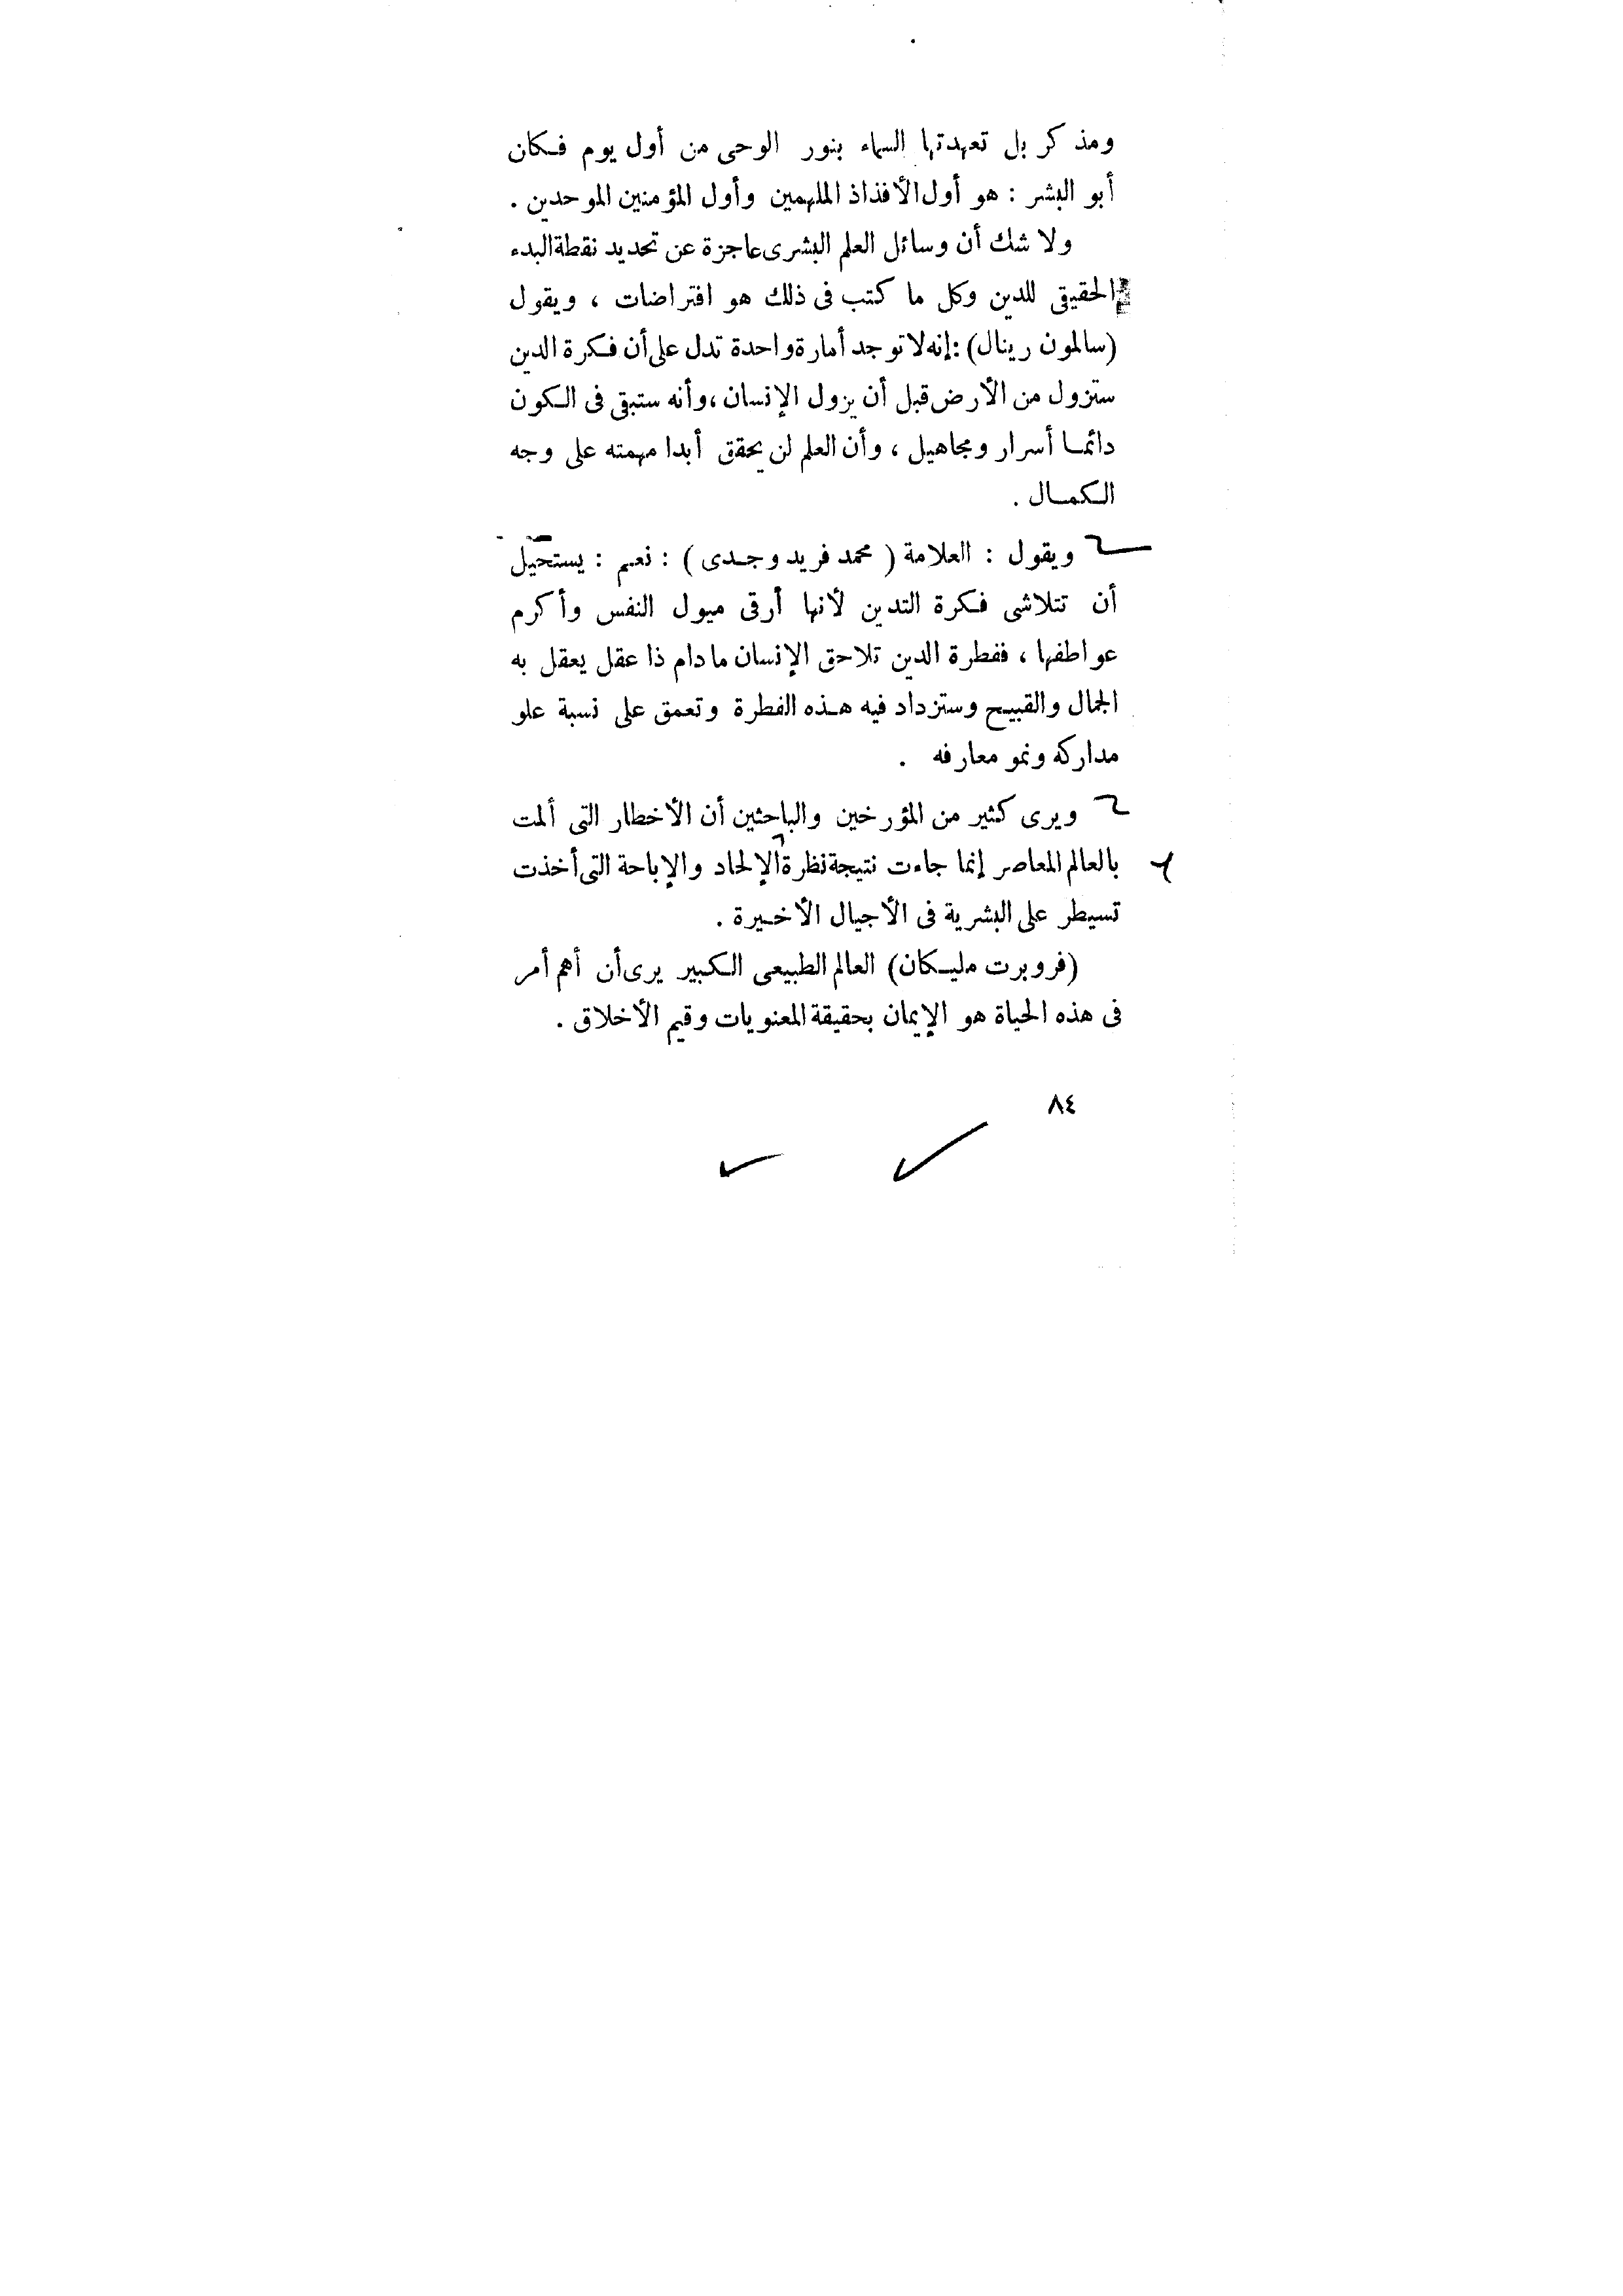 ومذكر بل تعهدتها السماء بنور الوحى من أول يوم فكان
أبو البشر : هو أول الأفذاذ الملهمين وأول المؤمنين الموحدين .
ولا شك أن وسائل العلم البشرى عاجزة عن تحديد نقطة البدء
الحقيقى للدين وكل ما كتب فى ذلك هو افتراضات ، ويقول
(سالمون رينال) : إنه لا توجد أمارة واحدة تدل على أن فكرة الدين
ستزول من الأرض قبل أن يزول الإنسان ، وأنه ستبقى فى الكون
دائما أسرار ومجاهيل ، وأن العلم لن يحقق أبدا مهمته على وجه
الكمال .
ويقول : العلامة ( محمد فريد وجدى ) : نعم : يستحيل
أن تتلاشى فكرة التدين لأنها أرقى ميول النفس وأكرم
عواطفها ، ففطرة الدين تلاحق الإنسان مادام ذا عقل يعقل به
الجمال والقبيح وستزداد فيه هذه الفطرة وتعمق على نسبة علو
مداركه ونمو معارفه .
ويرى كثير من المؤرخين والباحثين أن الأخطار التى ألمت
بالعالم المعاصر إنما جاءت نتيجة نظرة الإلحاد والإباحة التى أخذت
تسيطر على البشرية فى الأجيال الأخيرة .
(فروبرت مليكان) العالم الطبيعى الكبير يرى أن أهم أمر
فى هذه الحياة هو الإيمان بحقيقة المعنويات وقيم الأخلاق .
٨٤